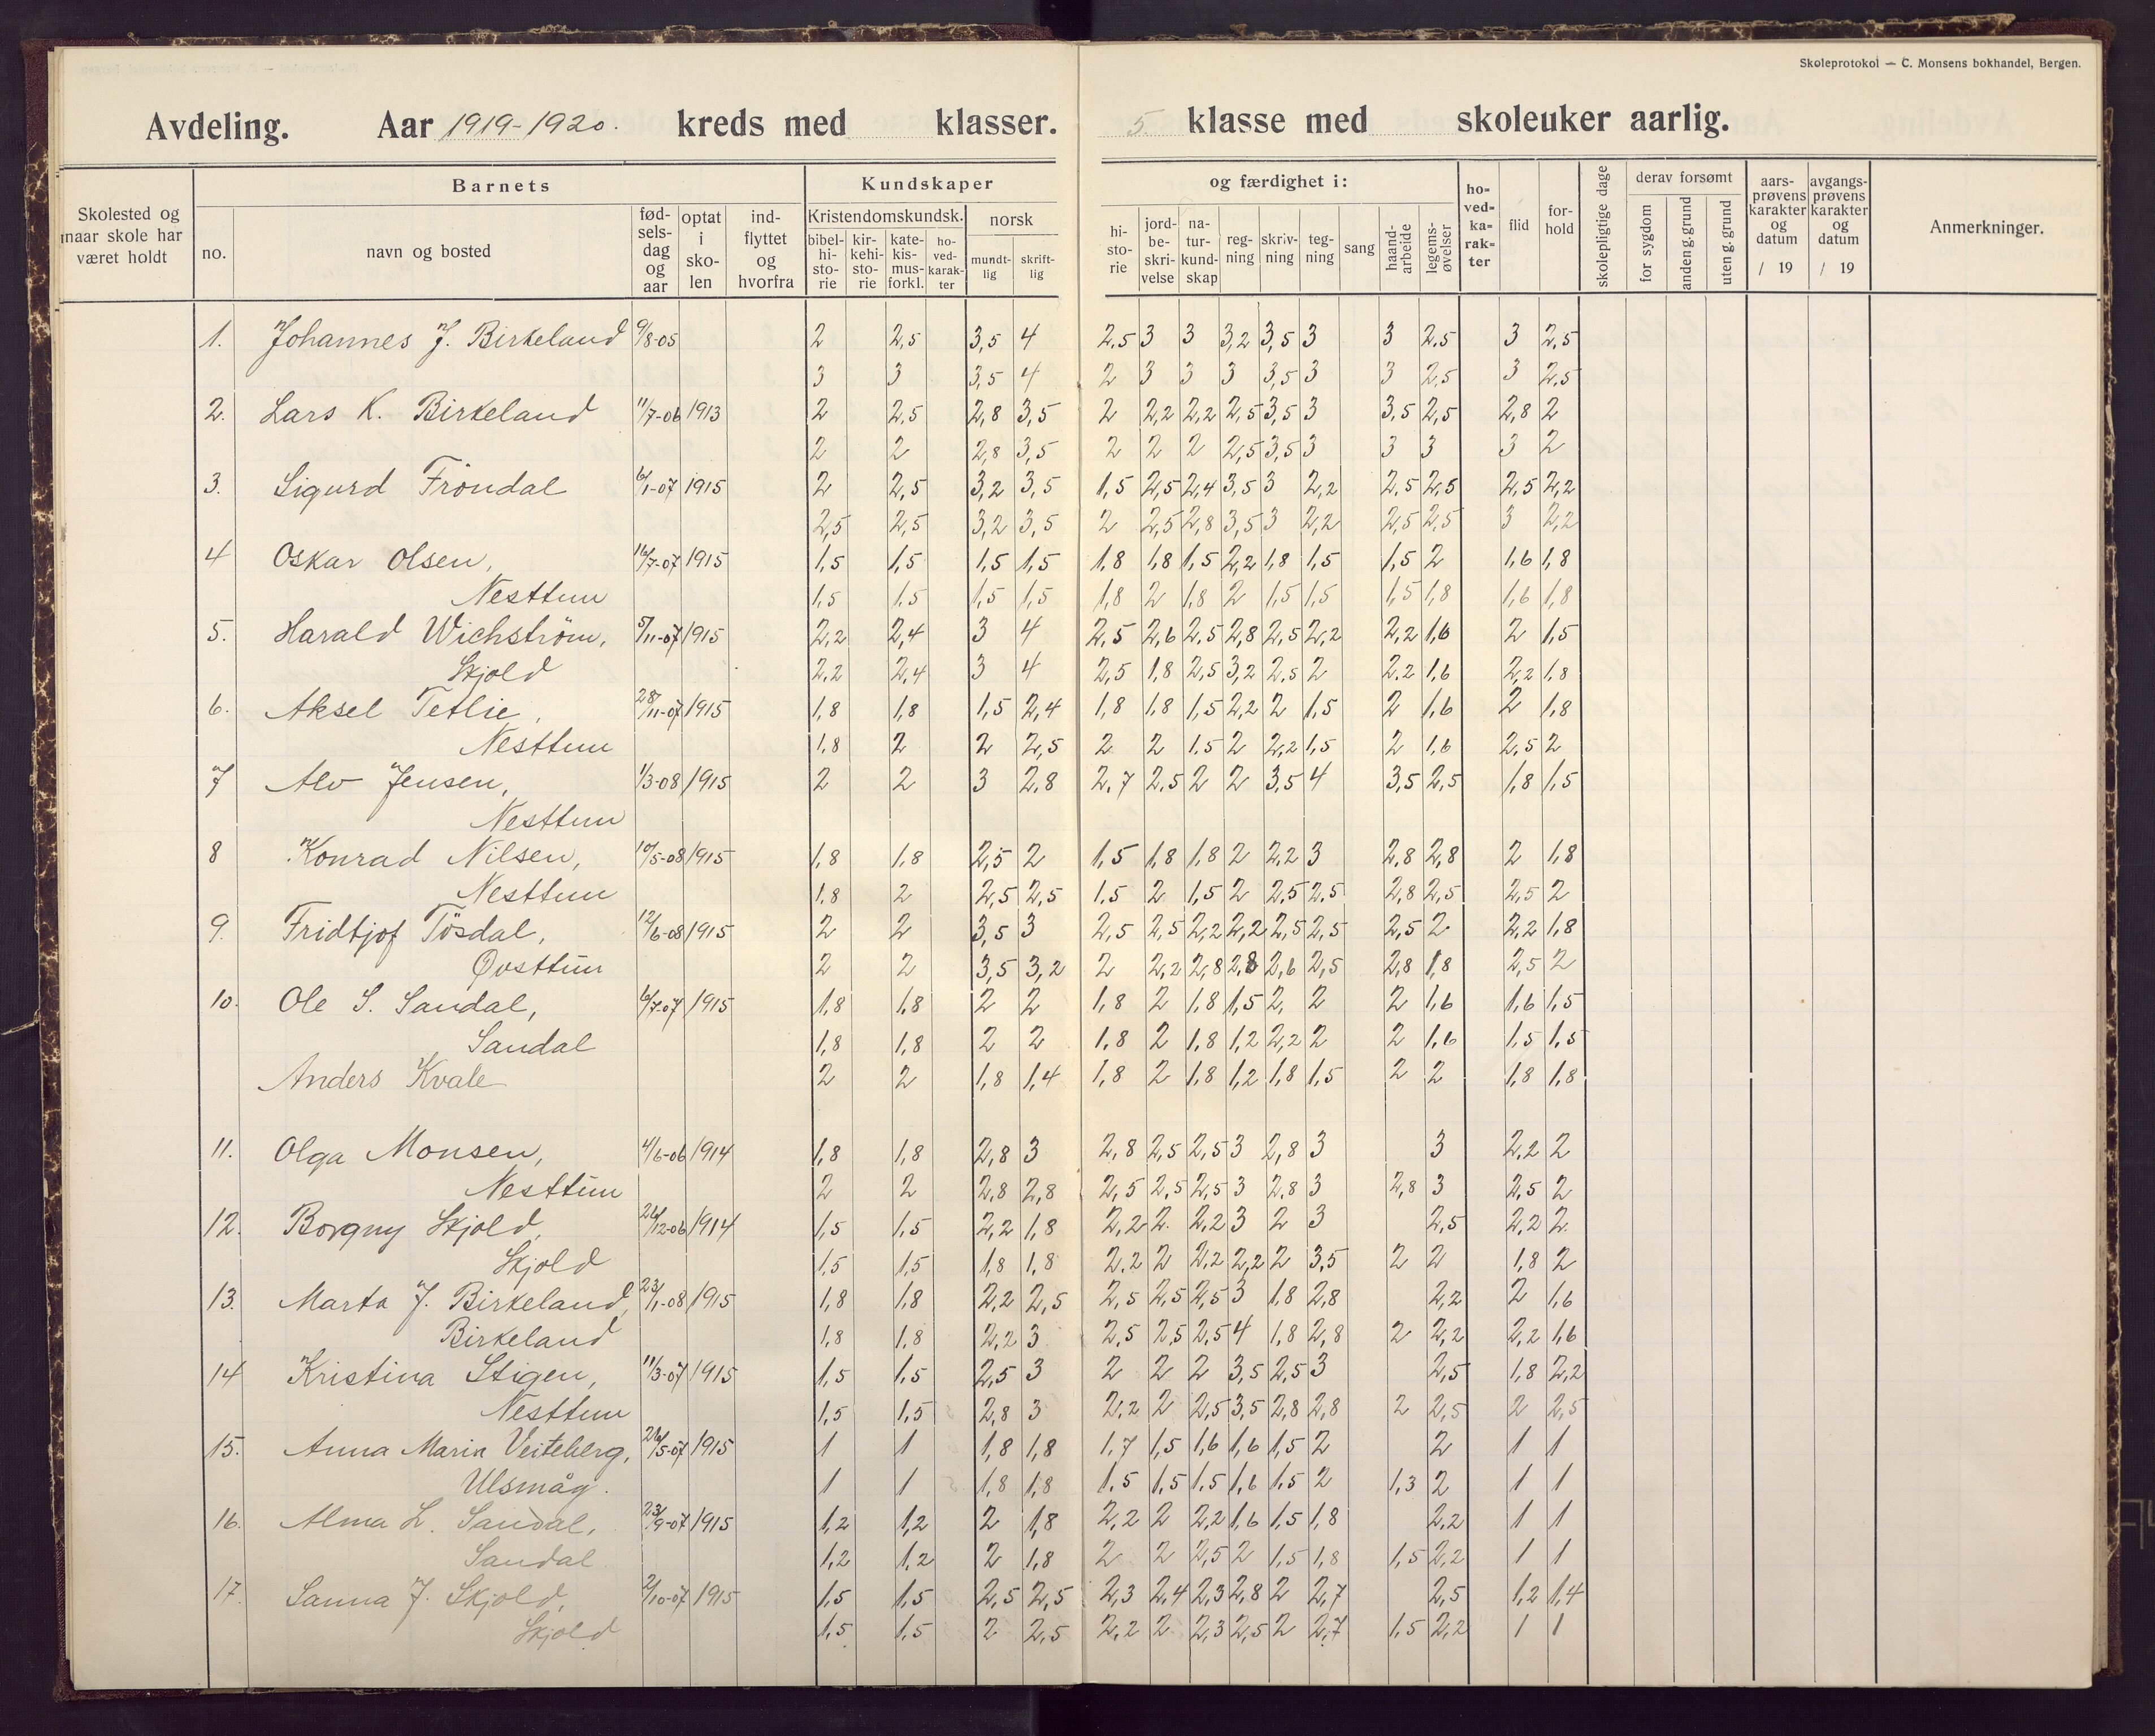 Skoleprotokol — C. Monsens bokhandel, Bergen.
Avdeling. Aar 1919-1920. kreds med klasser. 5. klasse med skoleuker aarlig.
Skolested og naar skole har været holdt
Barnets
no. navn og bosted fødselsdag og aar optat i skolen indflyttet og hvorfra
Kundskaper og færdighet i:
Kristendomskundsk. norsk
bibelhistorie kirkehistorie katekismusforkl. hovedkarakter mundtlig skriftlig
historie jordbeskrivelse naturkundskap regning skrivning tegning sang haandarbeide legemsøvelser hovedkarakter flid forhold
skolepligtige dage derav forsømt for sygdom anden g. grund uten g. grund
aarsprøvens karakter og datum / 19 avgangsprøvens karakter og datum / 19 Anmerkninger.
1. Johannes J. Birkeland 9/8-05 2 2,5 3,5 4 2,5 3 3 3,2 3,5 3 3 2,5 3 2,5
3 3 3,5 4 2 3 3 3 3,5 3 3 2,5 3 2,5
2. Lars K. Birkeland 11/7-06 1913 2 2,5 2,8 3,5 2 2,2 2,2 2,5 3,5 3 3,5 2,5 2,8 2
2 2 2,8 3,5 2 2 2 2,5 3,5 3 3 3 3 2
3. Sigurd Fröndal 6/1-07 1915 2 2,5 3,2 3,5 1,5 2,5 2,4 3,5 3 2,2 2,5 2,5 2,5 2,2
2,5 2,5 3,2 3,5 2 2,5 2,8 3,5 3 2,2 2,5 2,5 3 2,2
4 Oskar Olsen, 16/7-07 1915 1,5 1,5 1,5 1,5 1,8 1,8 1,5 2,2 1,8 1,5 1,5 2 1,6 1,8
Nesttun 1,5 1,5 1,5 1,5 1,8 2 1,8 2 1,5 1,5 1,5 1,8 1,6 1,8
5. Harald Wichström, 5/11-07 1915 2,2 2,4 3 4 2,5 2,6 2,5 2,8 2,5 2,2 2,2 1,6 2 1,5
Skjold 2,2 2,4 3 4 2,5 1,8 2,5 3,2 2,5 2 2,2 1,6 2,2 1,8
6. Aksel Tetlie, 28/11-07 1915 1,8 1,8 1,5 2,4 1,8 1,8 1,5 2,2 2 1,5 2 1,6 2 1,8
Nesttun 1,8 2 2 2,5 2 2 1,5 2 2,2 1,5 2 1,6 2,5 2
7 Alv Jensen, 1/3-08 1915 2 2 3 2,8 2,7 2,5 2 2 3,5 4 3,5 2,5 1,8 1,5
Nesttun
8 Konrad Nilsen, 10/5-08 1915 1,8 1,8 2,5 2 1,5 1,8 1,8 2 2,2 3 2,8 2,8 2 1,8
Nesttun 1,8 2 2,5 2,5 1,5 2 1,5 2 2,5 2,5 2,8 2,5 2,5 2
9. Fridtjof Tösdal, 12/6-08 1915 2 2 3,5 3 2,5 2,5 2,2 2,2 2,5 2,5 2,5 2 2,2 1,8
Øvsttun 2 2 3,5 3,2 2 2,2 2,8 2,8 2,6 2,5 2,8 1,8 2,5 2
10. Ole S. Sandal, 6/7-07 1915 1,8 1,8 2 2 1,8 2 1,8 1,5 2, 2 2 1,6 1,6 1,5
Sandal 1,8 1,8 2 2 1,8 2 1,8 1,2 2,2 2 2 1,6 1,5 1,5
Anders Kvale 2 2 1,8 1,4 1,8 2 1,8 1,2 1,8 1,5 2 2 1,8 1,8
11. Olga Monsen, 4/6-06 1914 1,8 1,8 2,8 3 2,8 2,5 2,5 3 2,8 3 3 2,2 2
Nesttun 2 2 2,8 2,8 2,5 2,5 2,5 3 2,8 3 2,8 3 2,5 2
12. Borgny Skjold, 26/12-06 1914 1,5 1,5 2,2 1,8 2,2 2. 2,2 3 2 3 2,5 2,2 2.
Skjold 1,5 1,5 1,8 1,8 2,2 2 2,2 2,2 2 3,5 2 2 1,8 2
13. Marta J. Birkeland, 23/1-08 1915 1,8 1,8 2,2 2,5 2,5 2,5 2,5 3 1,8 2,8 2,2 2 1,6
Birkeland 1,8 1,8 2,2 3 2,5 2,5 2,5 4 1,8 2,8 2 2,2 2,2 1,6
14 Kristina Stigen, 11/3-07 1915 1,5 1,5 2,5 3 2 2 2 3,5 2,5 3 2,5 1,8 2,2
Nesttun 1,5 1,5 2,8 3 2,2 2 2,5 3,5 2,8 2,8 2 2,5 2 2,5
15. Anna Maria Veiteberg, 26/5-07 1915 1 1 1,8 1,8 1,7 1,5 1,6 1,6 1,5 2 2 1 1
Ulsmåg. 1 1 1,8 1,8 1,5 1,5 1,5 1,6 1,5 2 1,3 2 1 1
16. Alma L. Sandal, 23/9-07 1915 1,2 1,2 2 1,8 2,2 2 2,2 1,6 1,5 1,8 2,2 1 1
Sandal 1,2 1,2 2 1,8 2 2 2,5 2 1,5 1,8 1,5 2,2 1 1
17. Sanna J. Skjold, 2/10-07 1915 1,5 1,5 2,5 2,5 2,3 2,4 2,3 2,8 2 2,7 2,5 1,2 1,4
Skjold 1,5 1,5 2 2,5 2,2 2 2,3 2,5 2 2,7 1,5 2,2 1 1